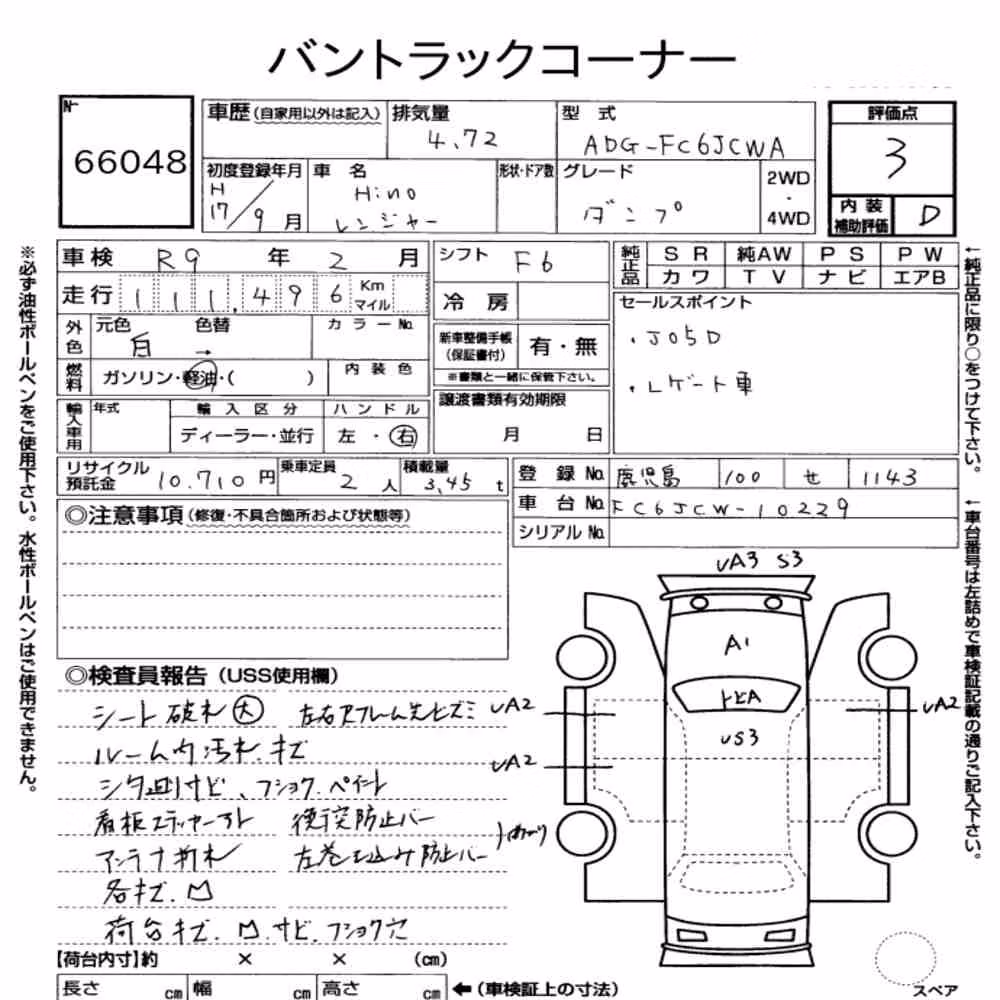 バントラックコーナー
№ 66048
車歴(自家用以外は記入) 排気量 4.72 型式 ADG-FC6JCWA 評価点 3
初度登録年月 H 17/9月 車名 Hino レンジャー 形状・ドア数 グレード ダンプ 2WD・4WD 内装補助評価 D
※必ず油性ボールペンをご使用下さい。水性ボールペンはご使用できません。
車検 R9年 2月 シフト F6 純正品 SR 純AW PS PW
カワ TV ナビ エアB
走行 111,496 Km マイル 冷房
セールスポイント
外色 元色 白 色替 → カラーNo. 新車整備手帳(保証書付) 有・無
※書類と一緒に保管下さい。
・J05D
燃料 ガソリン・軽油・( ) 内装色
・Lゲート車
輸入車用 年式 輸入区分 ハンドル 譲渡書類有効期限
ディーラー・並行 左・右 月 日
リサイクル預託金 10.710円 乗車定員 2人 積載量 3,45t
登録No. 鹿児島 100 せ 1143
車台No. FC6JCW-10229
シリアルNo.
←純正品に限り○をつけて下さい。
←車台番号は左詰めで車検証記載の通りご記入下さい。
◎注意事項(修復・不具合箇所および状態等)
◎検査員報告(USS使用欄)
シート破れ(大) 左右Rフレーム先ヒズミ
ルーム内汚れ.キズ
シタ回りサビ、フショク.ペイント
看板ステッカーアト 後突防止バー
アンテナ折れ 左巻き込み防止バー
各キズ.凹
荷台キズ.凹.サビ.フショク穴
UA3 S3
A1
トビA
US3
UA2
UA2
UA2
【荷台内寸】約 × × (cm)
長さ cm 幅 cm 高さ cm ←(車検証上の寸法)
スペア